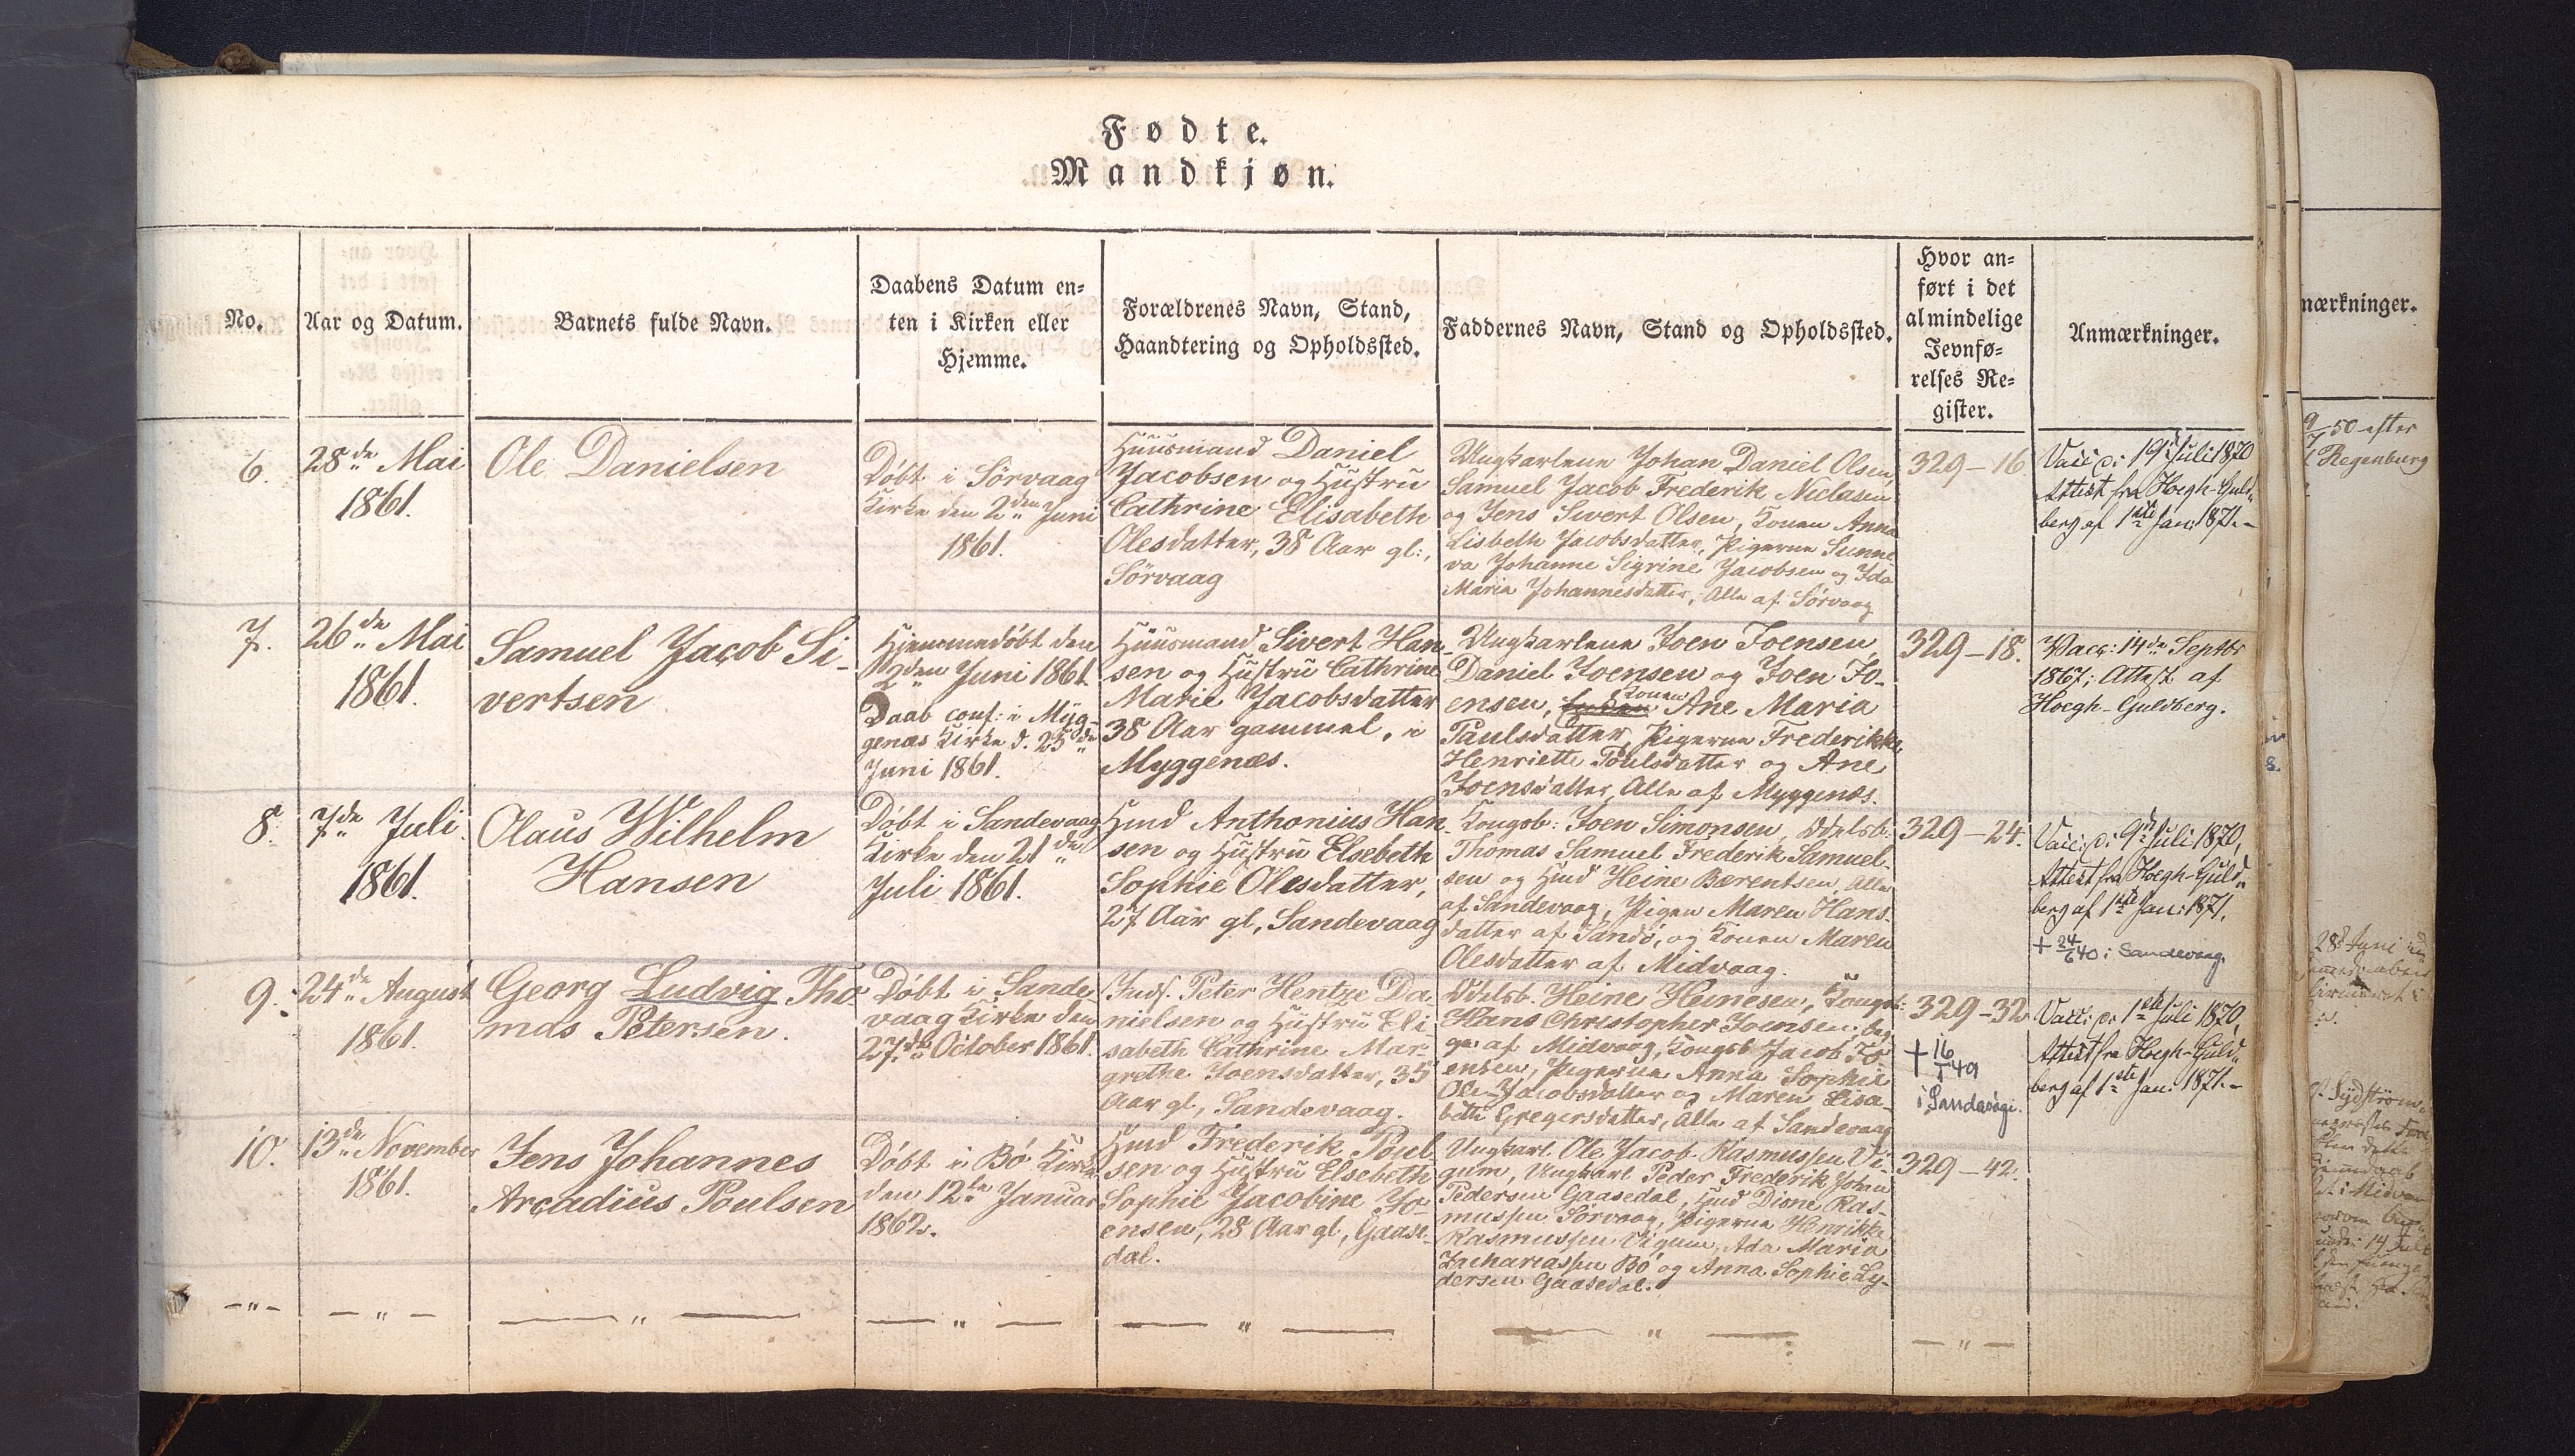 Fødte.
Mandkjøn.
No.
Aar og Datum.
Barnets fulde Navn.
Daabens Datum en-
ten i Kirken eller
Hjemme.
Forældrenes Navn, Stand,
Haandtering og Opholdssted.
Faddernes Navn, Stand og Opholdssted.
Hvor an-
ført i det
almindelige
Jevnfø-
relses Re-
gister.
Anmærkninger.
6.
28de Mai
1861.
Ole Danielsen
Döbt i Sörvaag
Kirke den 2den Juni
1861.
Huusmand Daniel
Jacobsen og Hustru
Cathrine Elisabeth
Olesdatter, 38 Aar gl:,
Sörvaag
Ungkarlene Johan Daniel Olsen,
Samuel Jacob Frederik Niclasen
og Jens Sivert Olsen, Konen Anna
Lisbeth Jacobsdatter, Pigerne Sunne
va Johanne Sigrine Jacobsen og Ida
Maria Johannesdatter, Alle af Sörvaag
329-16
Vacc: d: 19de Juli 1870
Attest fra Hoegh-Guld-
berg af 1ste Jan: 1871.-
7.
26de Mai
1861.
Samuel Jacob Si-
vertsen
Hjemmedöbt den
2den Juni 1861.
Daab conf: i Myg-
genæs Kirke d. 25de
Juni 1861.
Huusmand Sivert Han-
sen og Hustru Cathrine
Marie Jacobsdatter
38 Aar gammel, i
Myggenæs.
Ungkarlene Joen Joensen,
Daniel Joensen og Joen Jo-
ensen, Konen Ane Maria
Paulsdatter, Pigerne Frederikke
Henriette Poulsdatter og Ane
Joensdatter, Alle af Myggenæs.
329-18.
Vacc: 14de Septbr
1867; Attest af
Hoegh-Guldberg.
8.
7de Juli
1861.
Olaus Wilhelm
Hansen
Döbt i Sandevaag
Kirke den 21de
Juli 1861.
Hmd Anthonius Han-
sen og Hustru Elsebeth
Sophie Olesdatter,
27 Aar gl, Sandevaag
Kongsb: Joen Simonsen, Odelsb:
Thomas Samuel Frederik Samuel-
sen og Hmd Heine Bærentsen, Alle
af Sandevaag, Pigen Maren Hans-
datter af Sandö, og Konen Maren
Olesdatter af Midvaag.
329-24.
Vacc: d: 9de Juli 1870,
Attest fra Hoegh-Guld-
berg af 1ste Jan: 1871.
+ 24/6 40 i Sandevaag.
9.
24de August
1861.
Georg Ludvig Tho
mas Petersen.
Döbt i Sande
vaag Kirke den
27de October 1861.
Inds. Peter Hentze Da
nielsen og Hustru Eli
sabeth Cathrine Mar-
grethe Joensdatter, 35
Aar gl, Sandevaag.
Odelsb. Heine Heinesen, Kongsb:
Hans Christopher Joensen, beg
ge af Midvaag, Kongsb Jacob Jo-
ensen, Pigerne Anna Sophie
Ole-Jacobsdatter og Maren Lisa-
beth Gregersdatter, Alle af Sandevaag
329-32
+ 16/1 49
i Sandavági.
Vacc: d: 1ste Juli 1870,
Attest fra Hoegh-Guld-
berg af 1ste Jan: 1871.-
10.
13de November
1861.
Jens Johannes
Arcadius Poulsen
Döbt i Bö Kirke
den 12te Januar
1862.
Hmd Frederik Poul
sen og Hustru Elsebeth
Sophie Jacobine Jo-
ensen, 28 Aar gl, Gaase-
dal.
Ungkarl Ole Jacob Rasmussen Vi-
gum, Ungkarl Peder Frederik Johan
Pedersen Gaasedal, Hmd Dione Ras-
mussen Sörvaag, Pigerne Henrikke
Rasmussen Vigum, Ada Maria
Zachariassen Bö og Anna Sophie Ly-
dersen Gaasedal.
329-42.
mærkninger.
9/7 50 efter
Regenburg
28de Juni